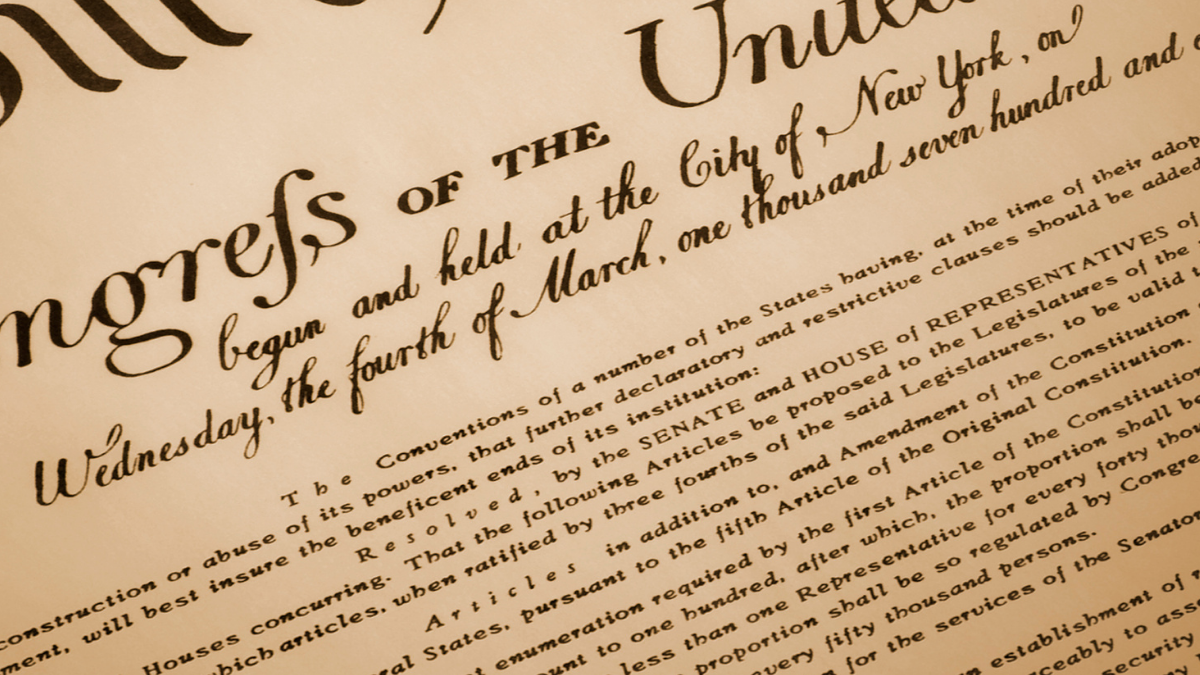 ngreſs OF THE United
begun and held at the City of New York, on
Wednesday, the fourth of March, one thousand seven hundred and
The Conventions of a number of the States having, at the time of their adop
construction or abuse of its powers, that further declaratory and restrictive clauses should be added
ment, will best insure the beneficent ends of its institution:
Resolved, by the SENATE and HOUSE of REPRESENTATIVES of
Houses concurring. That the following Articles be proposed to the Legislatures of the
which articles, when ratified by three fourths of the said Legislatures, to be valid t
Articles in addition to, and Amendment of the Constitution
ral States, pursuant to the fifth Article of the Original Constitution.
t enumeration required by the first Article of the Constitution
ount to one hundred, after which, the proportion shall be
less than one Representative for every forty thou
proportion shall be so regulated by Congre
every fifty thousand persons.
n for the services of the Senator
n establishment of
ceably to ass
security